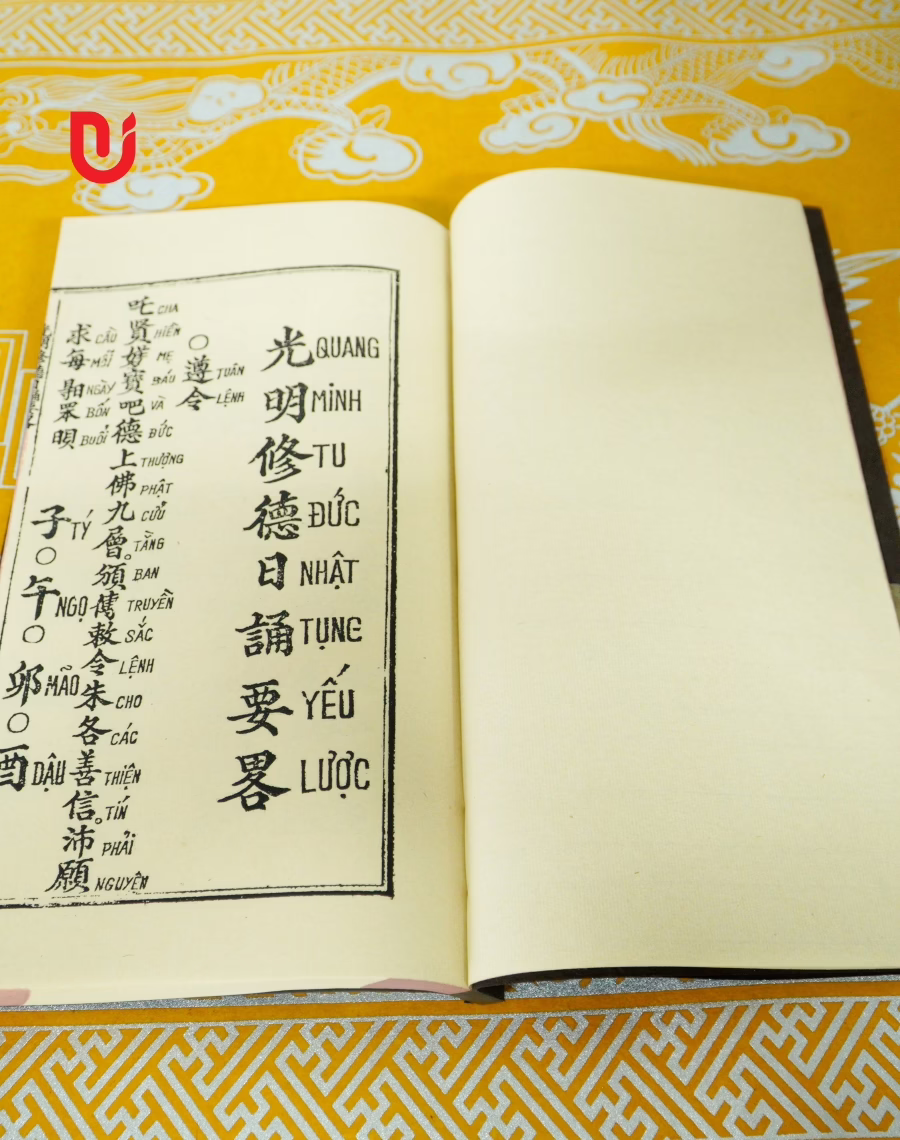 光明修德日誦要畧
QUANG MINH TU ĐỨC NHẬT TỤNG YẾU LƯỢC
○遵令
TUÂN LỆNH
吒賢媄寶吧德上佛九層。頒傳敕令朱各善信。沛願
CHA HIỀN MẸ BÁU VÀ ĐỨC THƯỢNG PHẬT CỬU TẦNG BAN TRUYỀN SẮC LỆNH CHO CÁC THIỆN TÍN PHẢI NGUYỆN
求每罘
CẦU MỖI NGÀY BỐN BUỔI
子○午○卯○酉
TÝ NGỌ MÃO DẬU